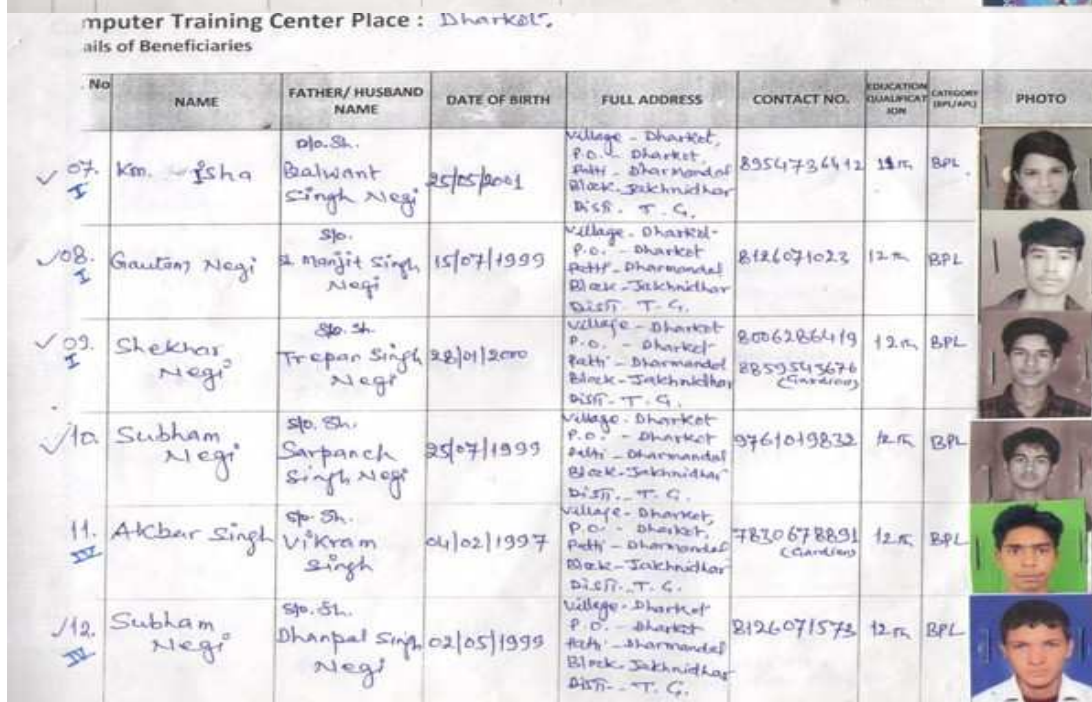 mputer Training Center Place : Dharkot.
ails of Beneficiaries
No NAME FATHER/ HUSBAND NAME DATE OF BIRTH FULL ADDRESS CONTACT NO. EDUCATION QUALIFICATION CATEGORY (BPL/APL) PHOTO
07. I Km. Isha D/o. Sh. Balwant Singh Negi 25/05/2001 Village - Dharkot, P.O. - Dharkot, Patti - Dharmandal Block - Jakhnidhar Distt. T. G. 8954736412 11th BPL
08. I Gautam Negi S/o. Manjit Singh Negi 15/07/1999 Village - Dharkot P.O. - Dharkot Patti - Dharmandal Block - Jakhnidhar Distt. T. G. 8126071023 12th BPL
09. I Shekhar Negi S/o. Sh. Trepan Singh Negi 28/01/2000 Village - Dharkot P.O. - Dharkot Patti - Dharmandal Block - Jakhnidhar Distt. T. G. 8006286419 8859543676 (Gardion) 12th BPL
10. Subham Negi S/o. Sh. Sarpanch Singh Negi 25/07/1999 Village - Dharkot P.O. - Dharkot Patti - Dharmandal Block - Jakhnidhar Distt. T. G. 9761019832 12th BPL
11. IV Akbar Singh S/o. Sh. Vikram Singh 04/02/1997 Village - Dharkot, P.O. - Dharkot, Patti - Dharmandal Block - Jakhnidhar Distt. T. G. 7830678891 (Gardion) 12th BPL
12. IV Subham Negi S/o. Sh. Dhanpal Singh Negi 02/05/1999 Village - Dharkot P.O. - Dharkot Patti - Dharmandal Block - Jakhnidhar Distt. T. G. 8126071573 12th BPL